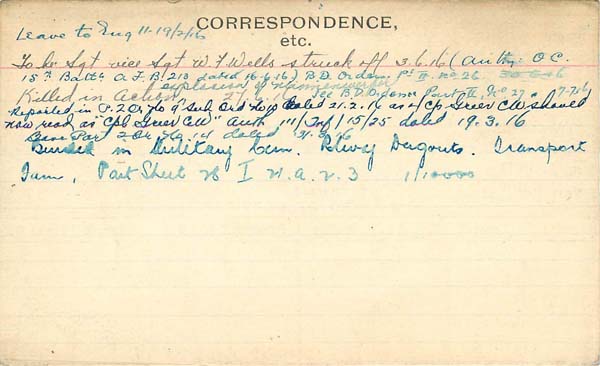 CORRESPONDENCE,
etc.
Leave to Eng 11-19/2/16
To be Sgt vice Sgt W F Wells struck off 3.6.16 (Auth: O.C.
15th Batt. A.F.B. 213 dated 16.6.16) B.D. Orders Pt II No 26
explosion of
Killed in Action See B.D. Orders Part II, No 27 7-7-16
Reported in P.2.O. No 9 Sub Ord No dated 21.2.16 as "Cpl Greer CW" should
now read as "Cpl Greer CW" Auth "11/Inf/15/25 dated 19.3.16
Part 2 Or. No 14 dated 31.3.16
Buried in Military Cem. Rlwy Dugouts. Transport
Farm, Part Sheet 28 I 21.a.2.3 1/10000